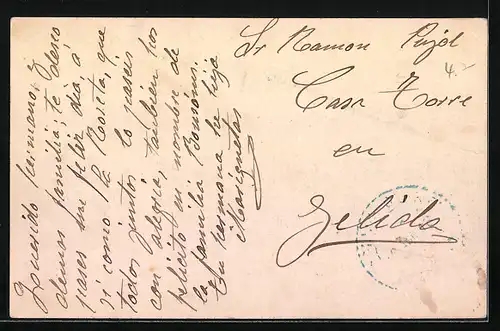 Querido hermano, y
demas familia; te deseo
pases un feliz dia, á
si como la Roseta, que
todos juntos lo paseis
con alegria, tambien los
felicito en nombre de
la familia Bonsoms.
Tu hermana te hija
Sr Ramon Pujol
4.-
Casa Torre
en
Gelida